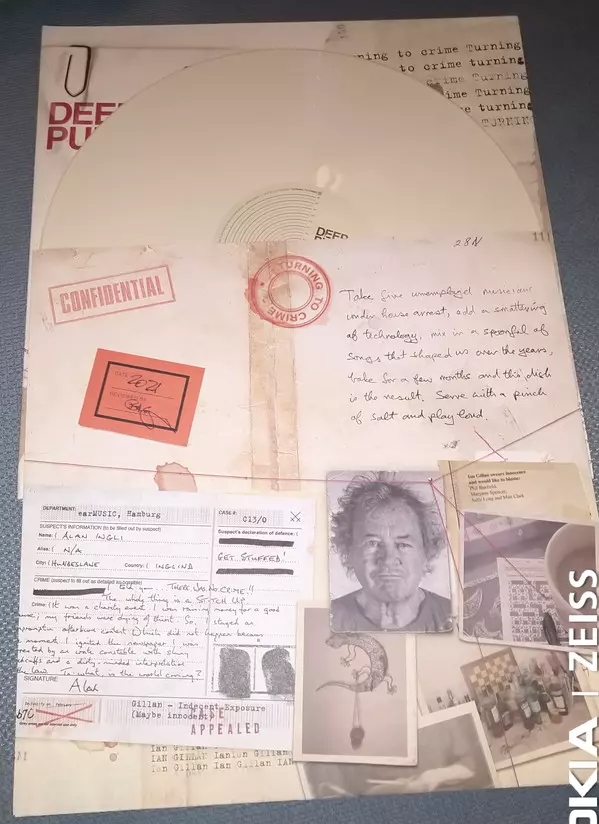 ning to crime Turning
to crime turning
ime Turning
e turning
TURNING
DEEP
PU
DEEP
28N
111
CONFIDENTIAL
TURNING TO CRIME
Take five unemployed musicians
under house arrest, add a smattering
of technology, mix in a spoonful of
songs that shaped us over the years,
bake for a few months and this dish
is the result. Serve with a pinch
of salt and play loud.
DATE 2021
REVIEWED BY
Ian Gillan swears innocence
and would like to blame:
DEPARTMENT: earMUSIC, Hamburg
CASE#: C13/0 XX
SUSPECT'S INFORMATION (to be filled out by suspect)
Name: ALAN INGLI
Alias: N/A
City: HUNDESLAVE Country: INGLIND
Suspect's declaration of defance:
GET STUFFED!
CRIME (suspect to fill out as detailed as possible)
I told you, THERE WAS NO CRIME!!
The whole thing is a STITCH UP
Crime: (It was a charity event. I was raising money for a good
my friends were dying of thirst. So, I staged an
impromptu
contest (which did not happen because
moment I ignited the newspaper, I was
rested by an irate constable with shiny
dcuffs and a dirty-minded interpretation
the law. To what is the world coming?
SIGNATURE
Alan
Gillan - Indecent Exposure
(Maybe innocent)
CASE
APPEALED
IAN GILLAN Ian
NOKIA | ZEISS